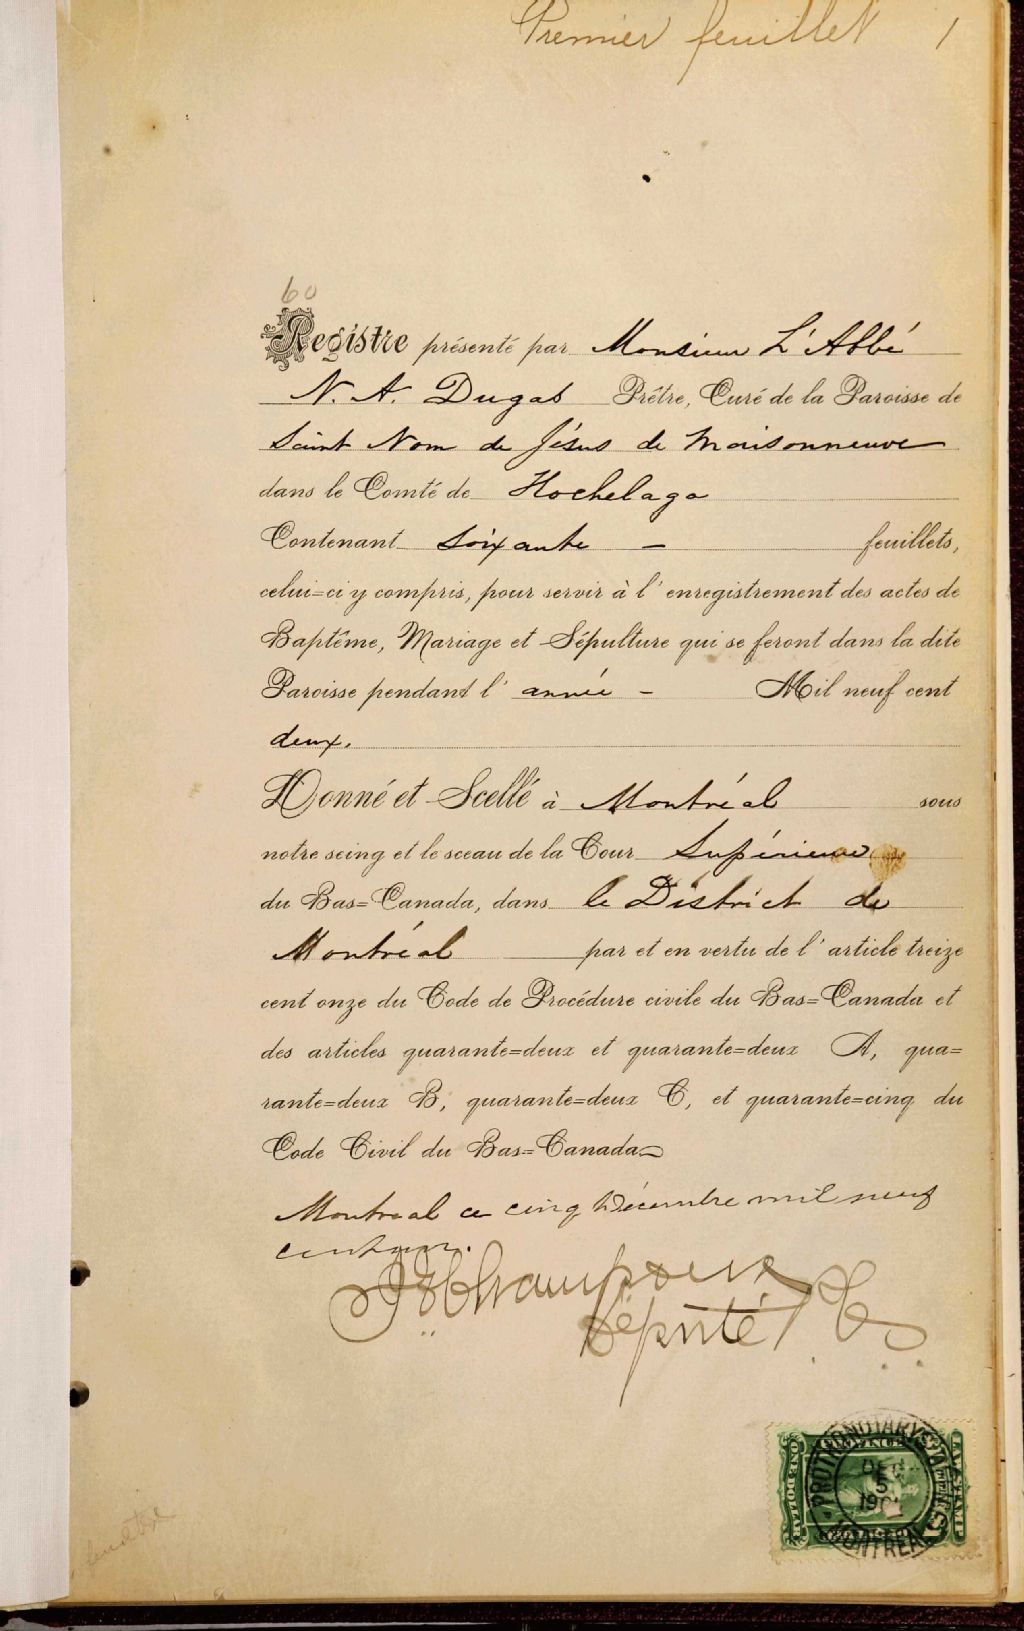 Premier feuillet 1
60
Registre présenté par Monsieur L'Abbé
N. A. Dugas Prêtre, Curé de la Paroisse de
Saint Nom de Jésus de Maisonneuve
dans le Comté de Hochelaga
Contenant soixante — feuillets,
celui=ci y compris, pour servir à l'enregistrement des actes de
Baptême, Mariage et Sépulture qui se feront dans la dite
Paroisse pendant l'année - Mil neuf cent
deux.
Donné et Scellé à Montréal sous
notre seing et le sceau de la Cour Supérieure
du Bas=Canada, dans le District de
Montréal par et en vertu de l'article treize
cent onze du Code de Procédure civile du Bas=Canada et
des articles quarante=deux et quarante=deux A, qua=
rante=deux B, quarante=deux C, et quarante=cinq du
Code Civil du Bas=Canada
Montreal ce cinq Décembre mil neuf
cent un.
Député P. C. S.
PROTHONOTARY'S OFFICE
DEC 5 1901
MONTREAL
LAW STAMP
ONE DOLLAR